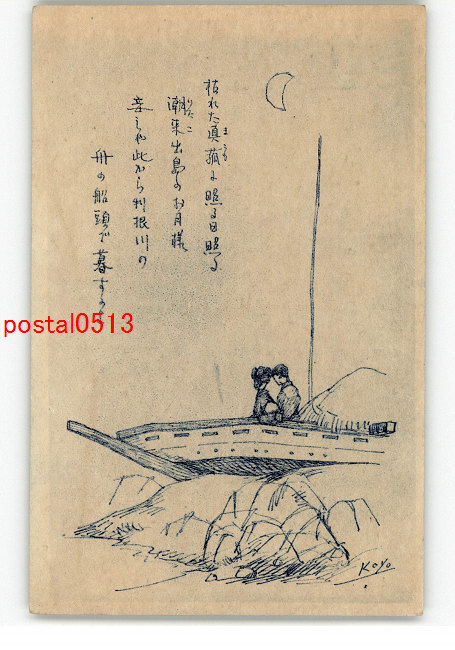 枯れた眞菰に照る日照る
まこも
潮来出島のお月様
いたこ
妾しや此から利根川の
舟の船頭で暮すの
postal0513
KOYO